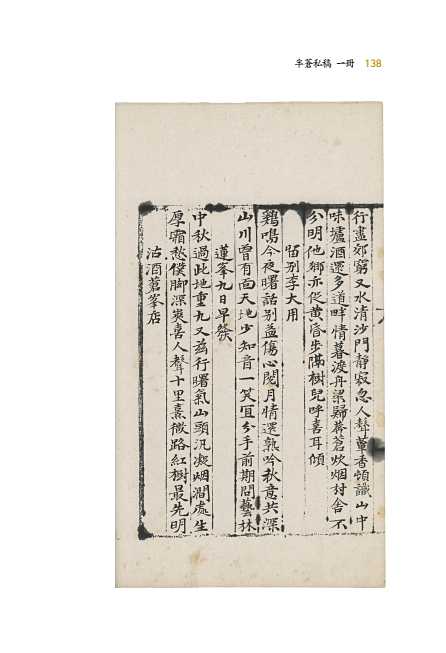 半蒼私稿 一冊 138
行盡郊窮又水清沙門靜寂忽人聲葷香頓識山中
味壚酒還多道畔情暮渡丹梁歸莽蒼炊烟村舍不
分明他鄉亦從黄昏步隔樹兒呼喜耳傾
留别李大用
鷄鳴今夜曙話别益傷心閱月情還熟吟秋意共深
山川曾有面天地少知音一笑宜分手前期問藝林
蓮峯九日早發
中秋過此地重九又茲行曙氣山頭汎凝烟澗處生
厚霜愁僕脚深炭喜人聲十里熹微路紅樹最先明
沽酒蒼峯店